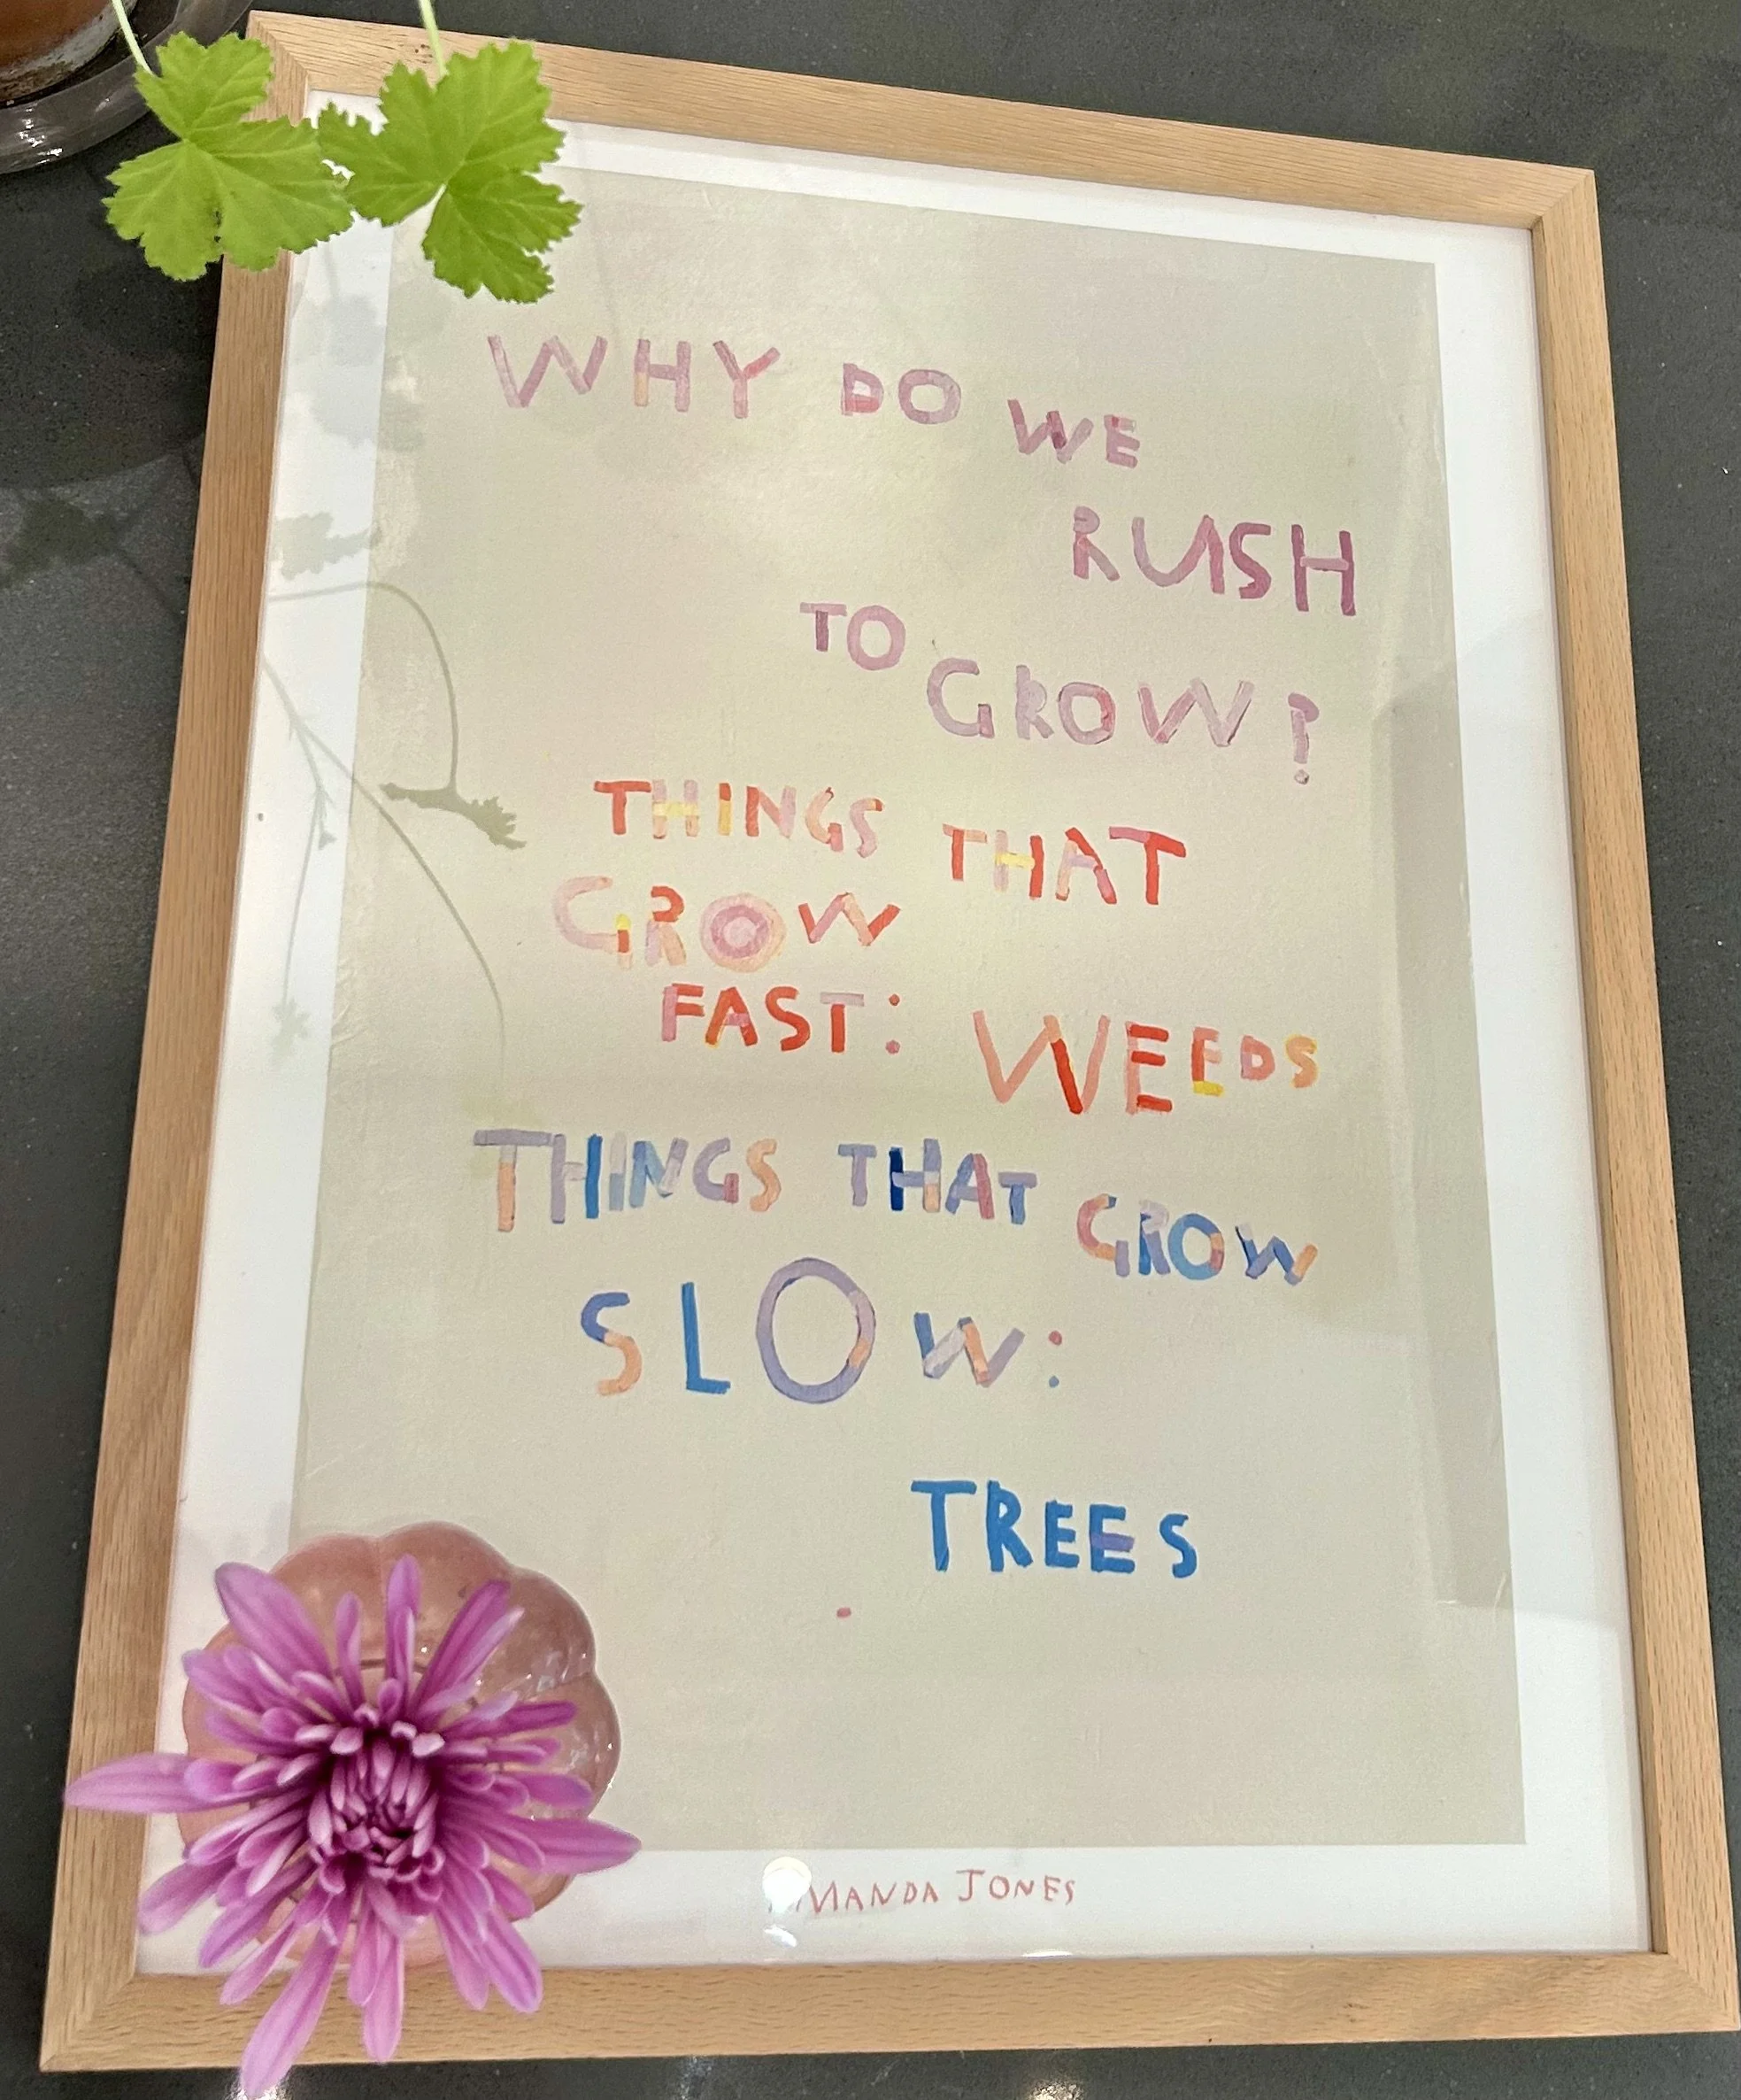 WHY DO WE
RUSH
TO GROW?
THINGS THAT
GROW
FAST: WEEDS
THINGS THAT GROW
SLOW:
TREES
AMANDA JONES